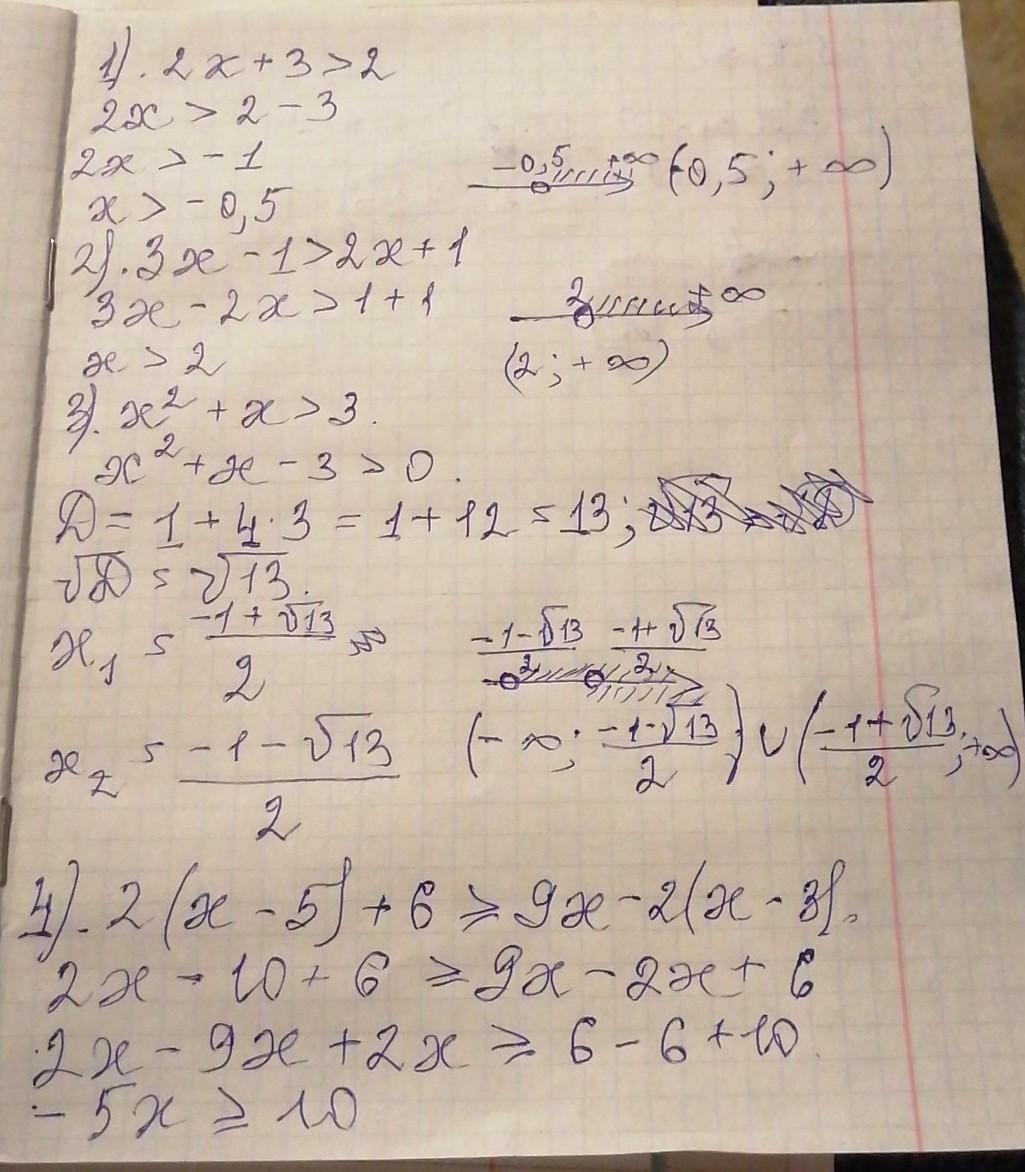 1). 2x + 3 > 2
2x > 2 - 3
2x > - 1
-0,5 +∞ (-0,5; + ∞)
x > - 0,5
2). 3x - 1 > 2x + 1
3x - 2x > 1 + 1
2 + ∞
x > 2
(2; + ∞)
3). x² + x > 3.
x² + x - 3 > 0.
D = 1 + 4·3 = 1 + 12 = 13;
√D = √13.
x₁ = (-1 + √13)/2
(-1-√13)/2 (-1+√13)/2
x₂ = (-1 - √13)/2
(- ∞; (-1-√13)/2) ∪ ((-1+√13)/2; +∞)
4). 2(x - 5) + 6 ⩾ 9x - 2(x - 3).
2x - 10 + 6 ⩾ 9x - 2x + 6
2x - 9x + 2x ⩾ 6 - 6 + 10
- 5x ⩾ 10